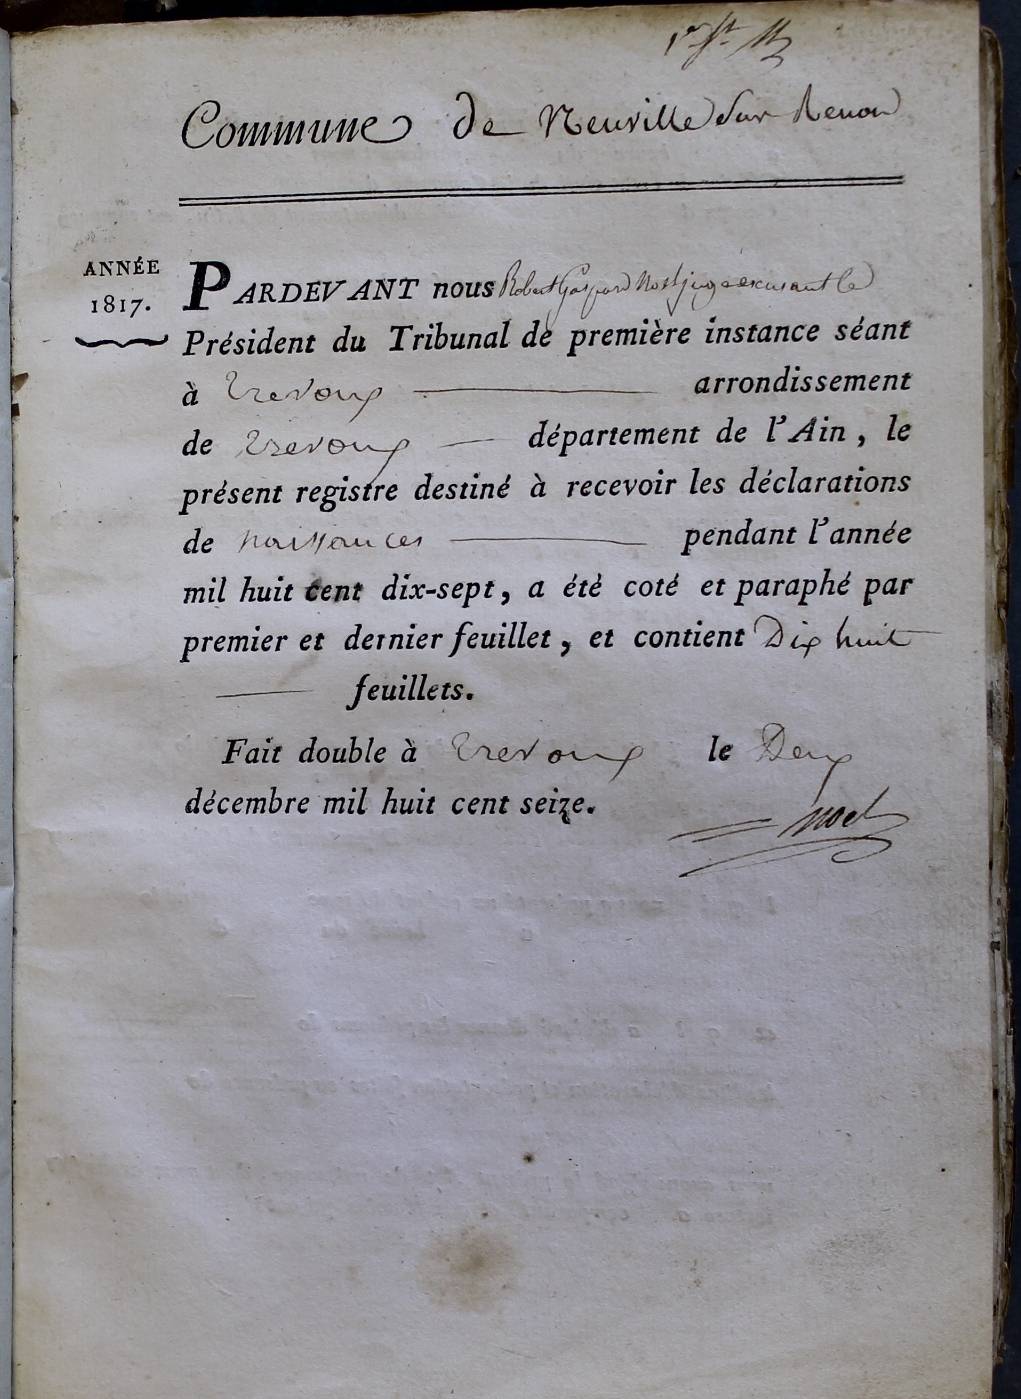 1er ft
Commune de Neuville sur Renon
ANNÉE
1817.
PARDEVANT nous Robert Gaspard Noel juge excusant le
Président du Tribunal de première instance séant
à Trevoux arrondissement
de Trevoux département de l'Ain, le
présent registre destiné à recevoir les déclarations
de naissances pendant l'année
mil huit cent dix-sept, a été coté et paraphé par
premier et dernier feuillet, et contient Dix huit
feuillets.
Fait double à Trevoux le Deux
décembre mil huit cent seize.
Noel